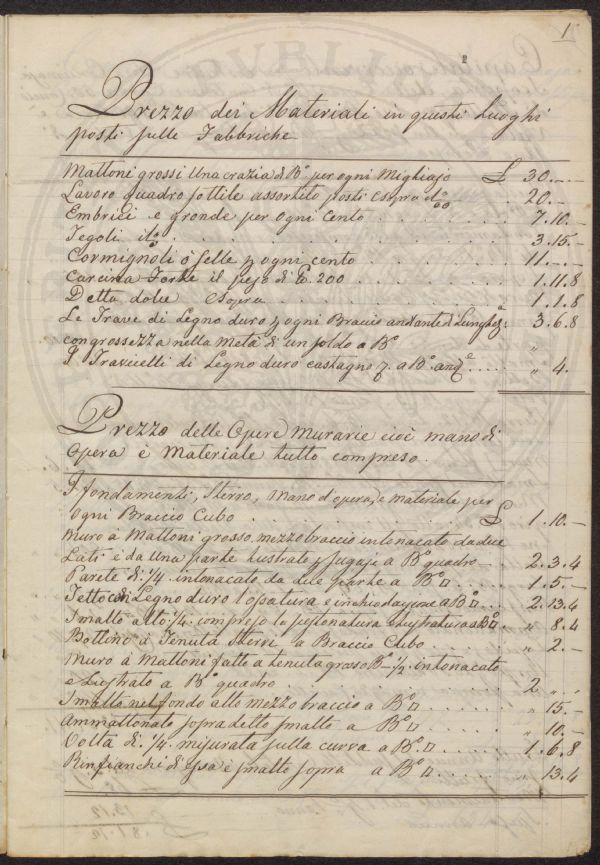 1
Prezzo dei Materiali in questi Luoghi
posti sulle Fabbriche
Mattoni grossi Una crazia di B.o per ogni Migliajo £ 30.—.—
Lavoro quadro sottile assortito posti c. sopra 20.—
Embrici e gronde per ogni Cento 7.10.—
Tegoli id.o 3.15.—
Cormignoli o selle p ogni cento 11.—.—
Carcina Forte il peso di £. 200 1.11.8
Detta dolce c. sopra 1.1.8
Le Trave di Legno duro p ogni Braccio andante di Lunghez.a 3.6.8
con grossezza nella metà di un soldo a B.o "
I Travicelli di Legno duro castagno p. a B.o and.e " 4.
Prezzo delle Opere Murarie cioè mano di
Opera è Materiale tutto compreso.
I fondamenti, Sterro, Mano d'opera, e materiale per
Ogni Braccio Cubo £ 1.10.—
Muro à Mattoni grosso mezzo braccio intonacato da due
Lati e da Una parte lustrato p fuga, a B.o quadro 2.3.4
Parete di 1/4 intonacato da due parte a B.o □ 1.5.—
Tetto con Legno duro a B.o □ 2.13.4
Smalto alto 1/4 compreso la pestonatura e lustratura a B.o □ " 8.4
Bottino à Tenuta Sterri a Braccio Cubo " 2.—
Muro à Mattoni fatto a tenuta grosso B.— 1/2 intonacato
e Lustrato a B.o quadro 2 " "
Smalto nel fondo alto mezzo braccio a B.o □ " 15.—
Ammattonato sopra detto smalto a B.o □ " 10.—
Volta di 1/4 misurata sulla curva a B.o □ 1.6.8
Rinfianchi di essa e smalto sopra a B.o □ " 13.4